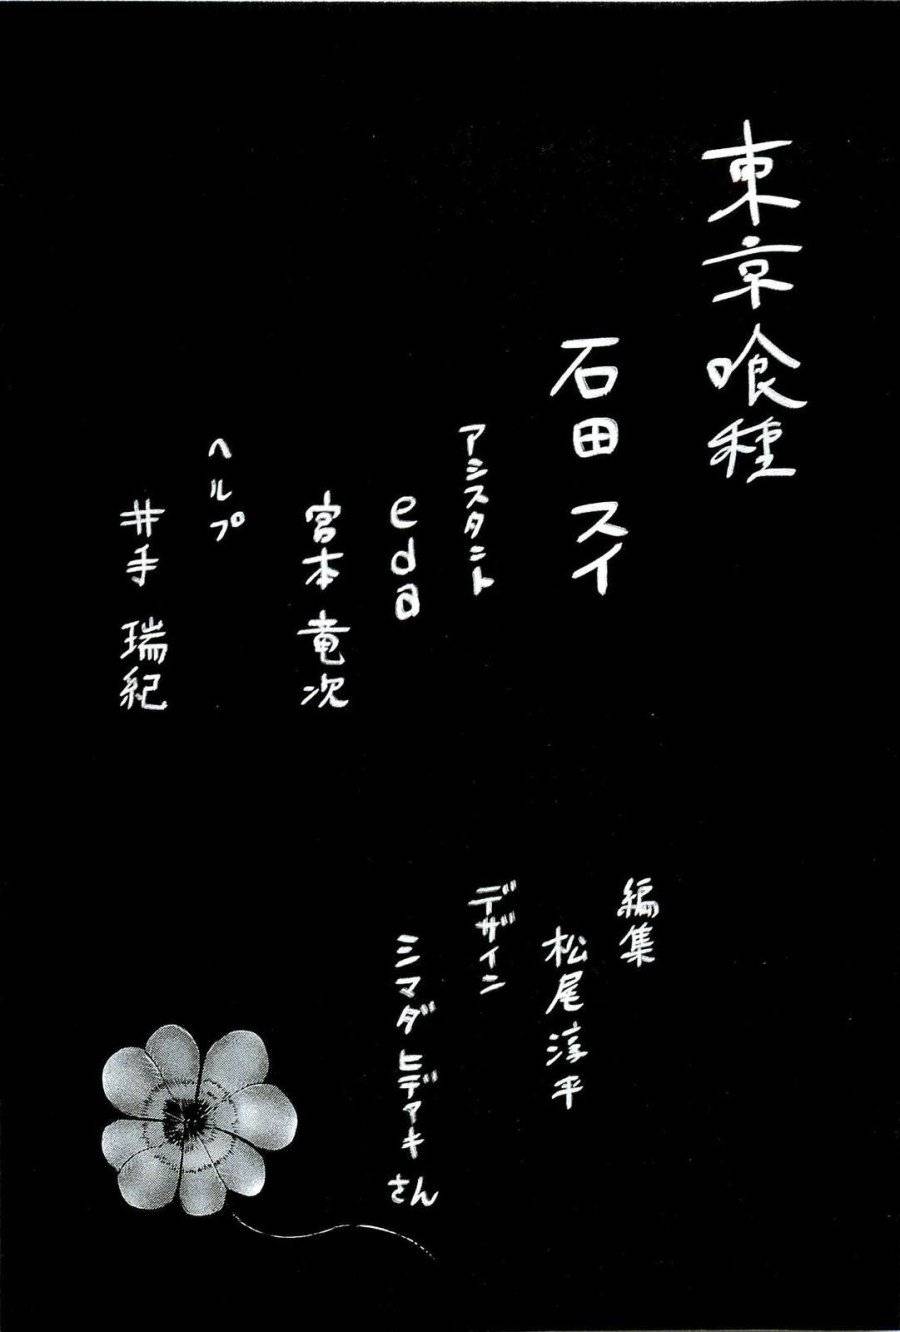 東京喰種
石田 スイ
アシスタント
eda
宮本 竜次
ヘルプ
井手 瑞紀
編集
松尾淳平
デザイン
シマダ ヒデアキ さん